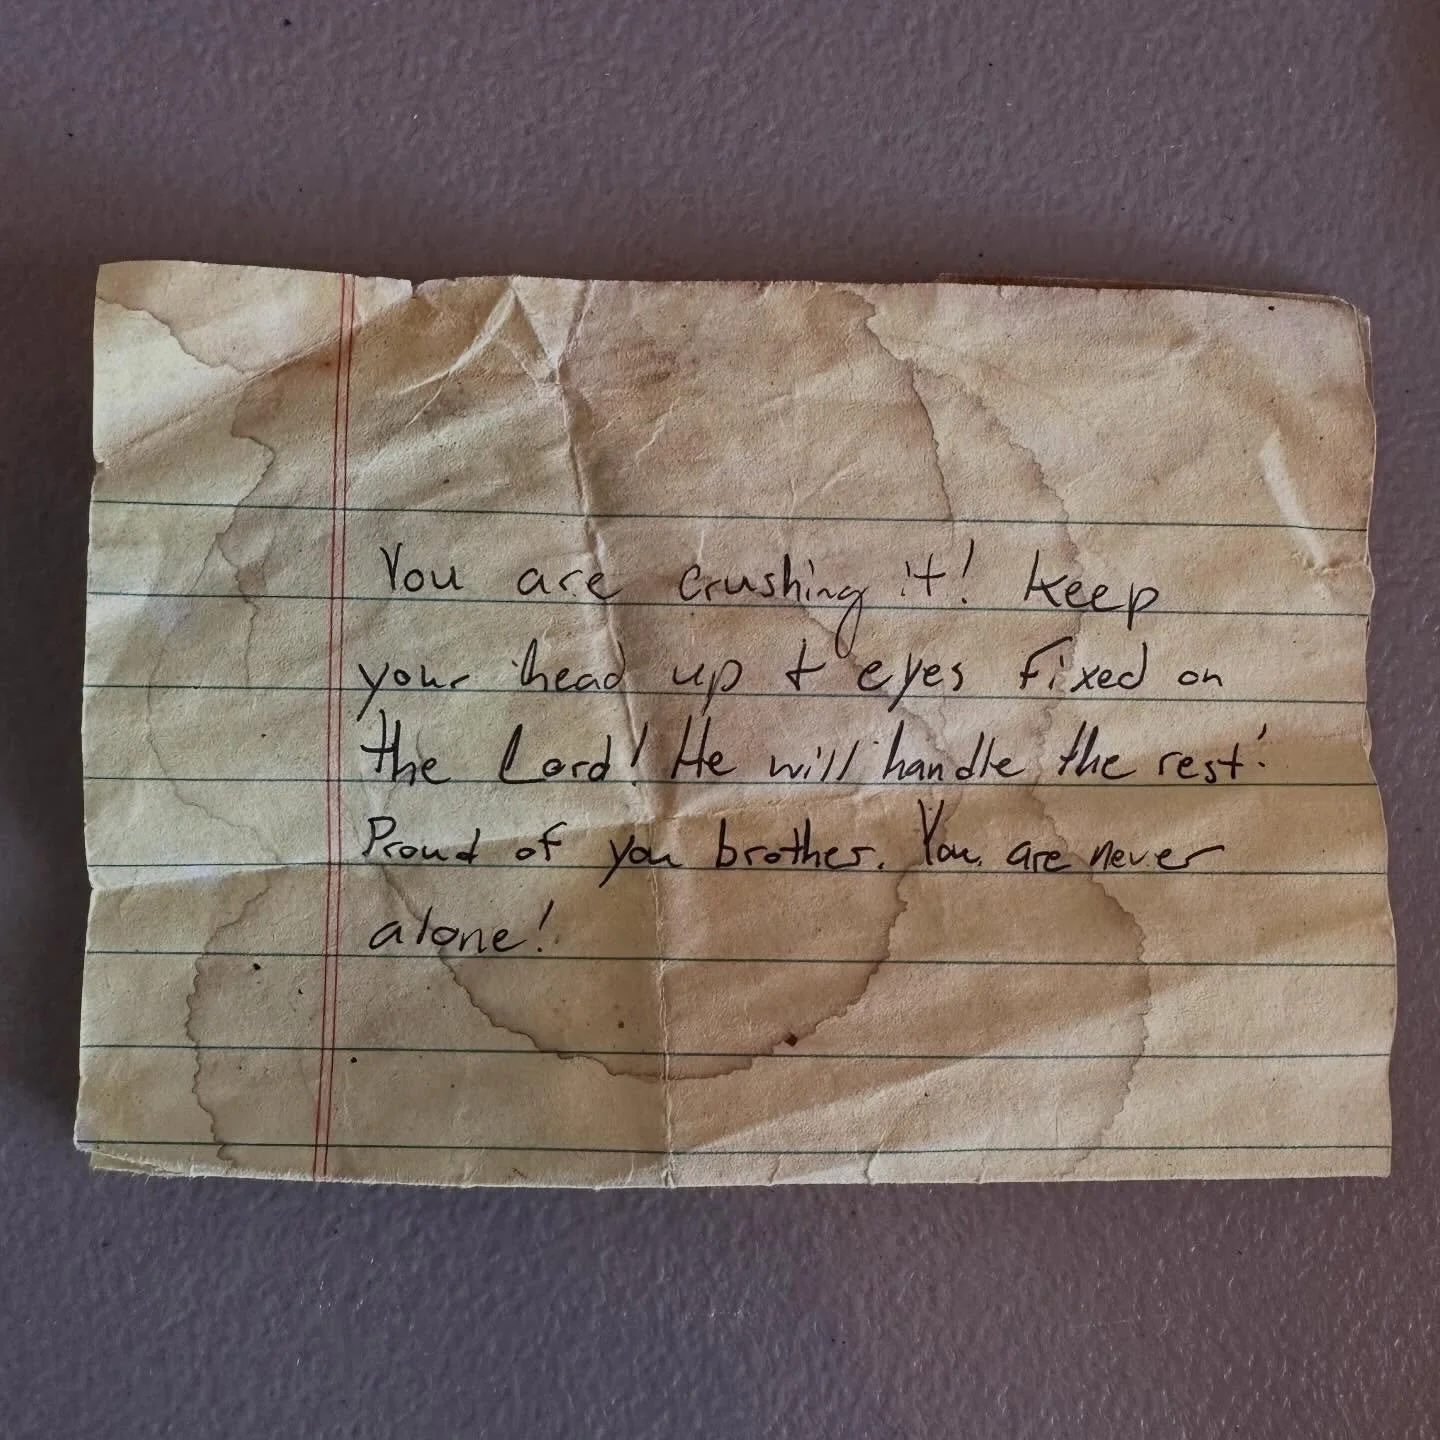 You are crushing it! Keep
your head up & eyes fixed on
the Lord! He will handle the rest!
Proud of you brother. You are never
alone!